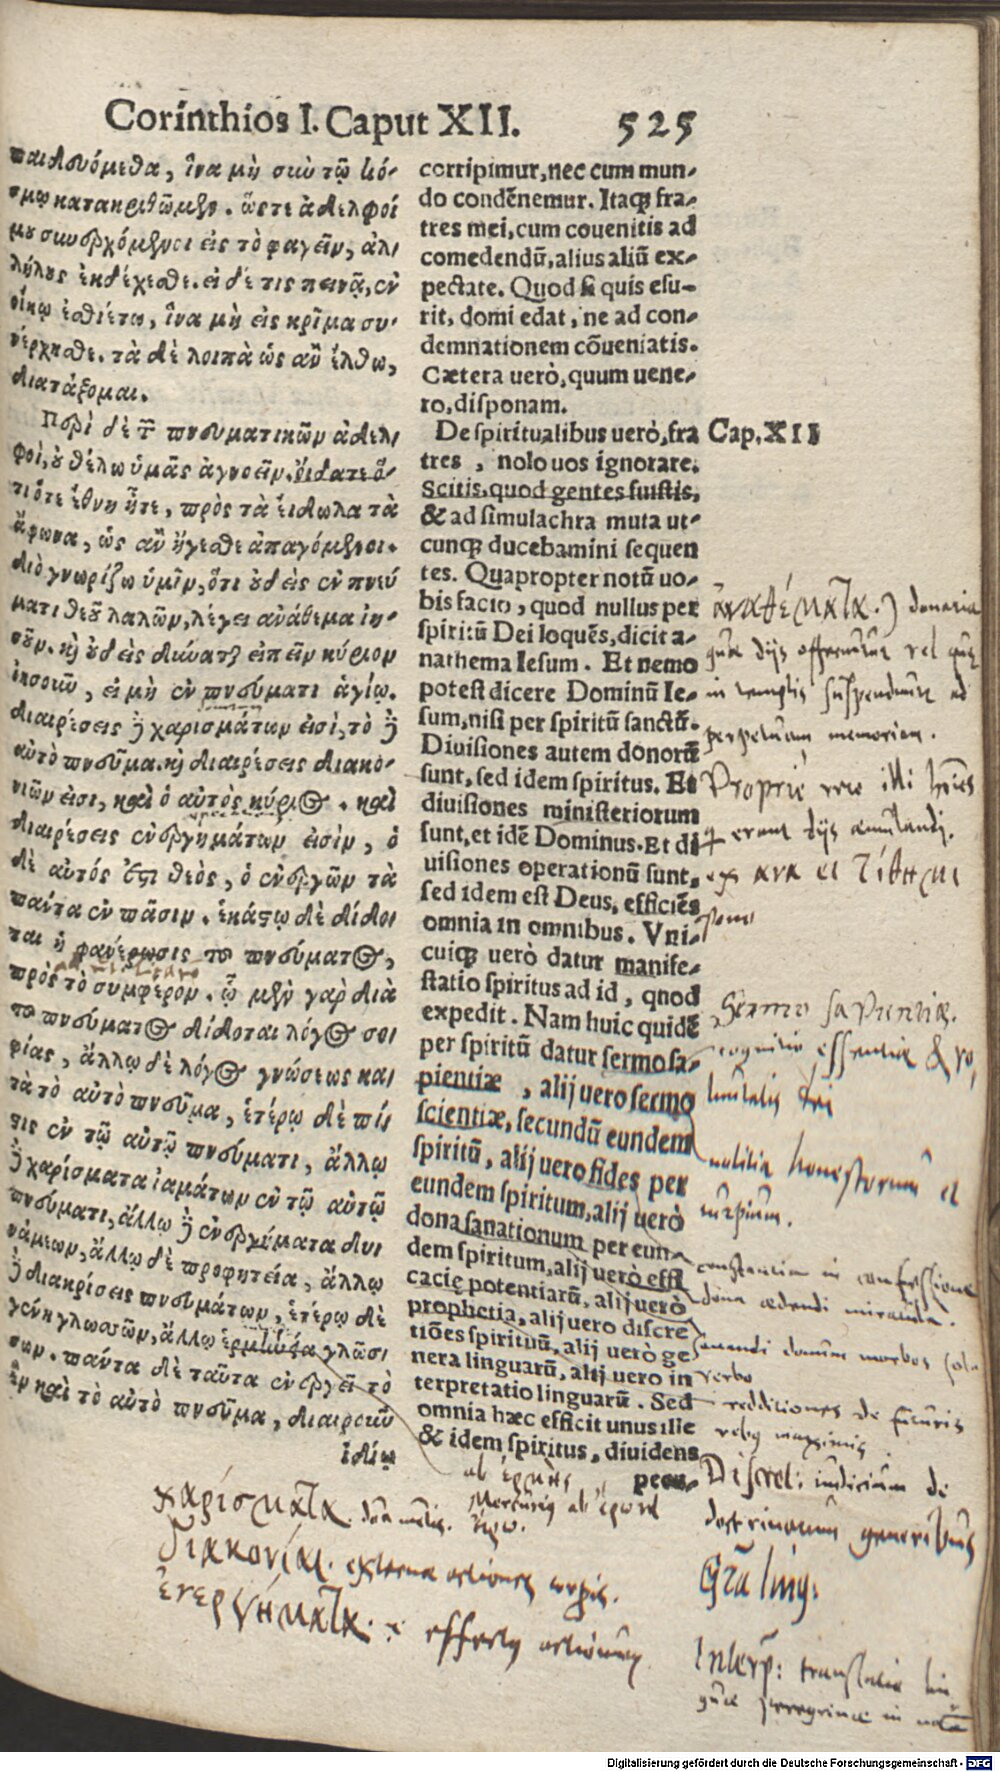 Corinthios I. Caput XII. 525
παιδευόμεθα, ἵνα μὴ σὺν τῷ κό-
σμῳ κατακριθῶμεν. ὥστε ἀδελφοί
μου συνερχόμενοι εἰς τὸ φαγεῖν, ἀλ-
λήλους ἐκδέχεσθε. εἰ δέ τις πεινᾷ, ἐν
οἴκῳ ἐσθιέτω, ἵνα μὴ εἰς κρῖμα συ-
νέρχησθε. τὰ δὲ λοιπὰ ὡς ἂν ἔλθω,
διατάξομαι.
Περὶ δὲ τῶν πνευματικῶν ἀδελ-
φοὶ, οὐ θέλω ὑμᾶς ἀγνοεῖν. οἴδατε ὅ-
τι ὅτε ἔθνη ἦτε, πρὸς τὰ εἴδωλα τὰ
ἄφωνα, ὡς ἂν ἤγεσθε ἀπαγόμενοι.
διὸ γνωρίζω ὑμῖν, ὅτι οὐδεὶς ἐν πνεύ
ματι θεοῦ λαλῶν, λέγει ανάθεμα ἰη-
σοῦν. καὶ οὐδεὶς δύναται εἰπεῖν κύριον
ἰησοῦν, εἰ μὴ ἐν πνεύματι ἁγίῳ.
διαιρέσεις δὲ χαρισμάτων εἰσὶ, τὸ δὲ
αὐτὸ πνεῦμα. καὶ διαιρέσεις διακο-
νιῶν εἰσι, καὶ ὁ αὐτὸς κύριος. καὶ
διαιρέσεις ἐνεργημάτων εἰσὶν, ὁ
δὲ αὐτός ἐστι θεὸς, ὁ ἐνεργῶν τὰ
πάντα ἐν πᾶσιν. ἑκάστῳ δὲ δίδο-
ται ἡ φανέρωσις τοῦ πνεύματος,
πρὸς τὸ συμφέρον. ᾧ μὲν γὰρ διὰ
τοῦ πνεύματος δίδοται λόγος σο-
φίας, ἄλλῳ δὲ λόγος γνώσεως κα-
τὰ τὸ αὐτὸ πνεῦμα, ἑτέρῳ δὲ πίσ
τις ἐν τῷ αὐτῷ πνεύματι, ἄλλῳ
δὲ χαρίσματα ἰαμάτων ἐν τῷ αὐτῷ
πνεύματι, ἄλλῳ δὲ ἐνεργήματα δυ-
νάμεων, ἄλλῳ δὲ προφητεία, ἄλλῳ
δὲ διακρίσεις πνευμάτων, ἑτέρῳ δὲ
γένη γλωσσῶν, ἄλλῳ ἑρμηνεία γλωσ-
σῶν. πάντα δὲ ταῦτα ἐνεργεῖ τὸ
ἓν καὶ τὸ αὐτὸ πνεῦμα, διαιροῦν
ἰδίᾳ
corripimur, nec cum mun-
do condēnemur. Itaq; fra-
tres mei, cum cōuenitis ad
comedendū, alius aliū ex-
pectate. Quod si quis esu-
rit, domi edat, ne ad con-
demnationem cōueniatis.
Cætera uerò, quum uene-
ro, disponam.
De spiritualibus uerò, fra
tres, nolo uos ignorare.
Scitis, quod gentes fuistis,
& ad simulachra muta ut-
cunq; ducebamini sequen
tes. Quapropter notū uo-
bis facio, quod nullus per
spiritū Dei loquēs, dicit a-
nathema Iesum. Et nemo
potest dicere Dominū Ie-
sum, nisi per spiritū sanctū.
Diuisiones autem donorū
sunt, sed idem spiritus. Et
diuisiones ministeriorum
sunt, et idē Dominus. Et di
uisiones operationū sunt,
sed idem est Deus, efficiēs
omnia in omnibus. Vni-
cuiq; uerò datur manife-
statio spiritus ad id, quod
expedit. Nam huic quidē
per spiritū datur sermo sa-
pientiæ, alij uero sermo
scientiæ, secundū eundem
spiritū, alij uero fides per
eundem spiritum, alij uerò
dona sanationum per eun-
dem spiritum, alij uerò effi
cacię potentiarū, alij uerò
prophetia, alij uero discre
tiōes spirituū, alij uerò ge
nera linguarū, alij uero in
terpretatio linguarū. Sed
omnia hæc efficit unus ille
& idem spiritus, diuidens
pecu-
Cap. XII
ἀναθέματα. donaria
quæ dijs offeruntur vel quæ
in templis suspenduntur ad
perpetuam memoriam.
Propriè vero illi hoīes
q̄ erant dijs
ex ανα et τίθημι
Sermo sapientiæ.
cognitio essentiæ & vo
luntatis Dei
notitia honestorum et
turpium.
constantia in confessione
dona edendi miracula.
sanandi donum morbos solo
verbo
redditiones de futuris
rebus maximis
Discret: iudicium de
doctrinarum generibus
Gn̄a ling.
Interp: translatio lin
guæ peregrinæ in
ab ἑρμῆς
Mercurius ab
χαρίσματα.
διακονίαι. externæ actiones
ἐνεργήματα. effectus actionum
Digitalisierung gefördert durch die Deutsche Forschungsgemeinschaft - DFG